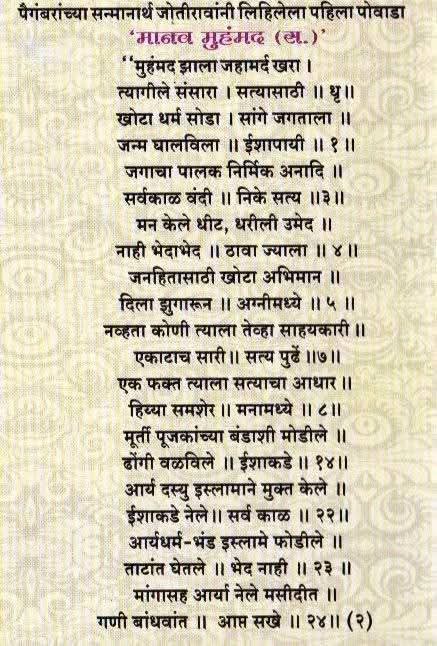 पैगंबरांच्या सन्मानार्थ जोतीरावांनी लिहिलेला पहिला पोवाडा
‘मानव मुहंमद (स.)’
“मुहंमद झाला जहामर्द खरा ।
त्यागीले संसारा । सत्यासाठी ॥ धृ॥
खोटा धर्म सोडा । सांगे जगताला ॥
जन्म घालविला ॥ ईशापायी ॥ १॥
जगाचा पालक निर्मिक अनादि ॥
सर्वकाळ वंदी ॥ निके सत्य ॥३॥
मन केले धीट, धरीली उमेद ॥
नाही भेदाभेद ॥ ठावा ज्याला ॥ ४॥
जनहितासाठी खोटा अभिमान ॥
दिला झुगारून ॥ अग्नीमध्ये ॥ ५ ॥
नव्हता कोणी त्याला तेव्हा साहयकारी ॥
एकाटाच सारी॥ सत्य पुढें ॥७॥
एक फक्त त्याला सत्याचा आधार ॥
हिय्या समशेर ॥ मनामध्ये ॥ ८॥
मूर्ती पूजकांच्या बंडाशी मोडीले ॥
ढोंगी वळविले ॥ ईशाकडे ॥ १४॥
आर्य दस्यु इस्लामाने मुक्त केले ॥
ईशाकडे नेले॥ सर्व काळ ॥ २२॥
आर्यधर्म-भंड इस्लामे फोडीले ॥
ताटांत घेतले ॥ भेद नाही ॥ २३ ॥
मांगासह आर्या नेले मसीदीत ॥
गणी बांधवांत ॥ आप्त सखे ॥ २४॥ (२)